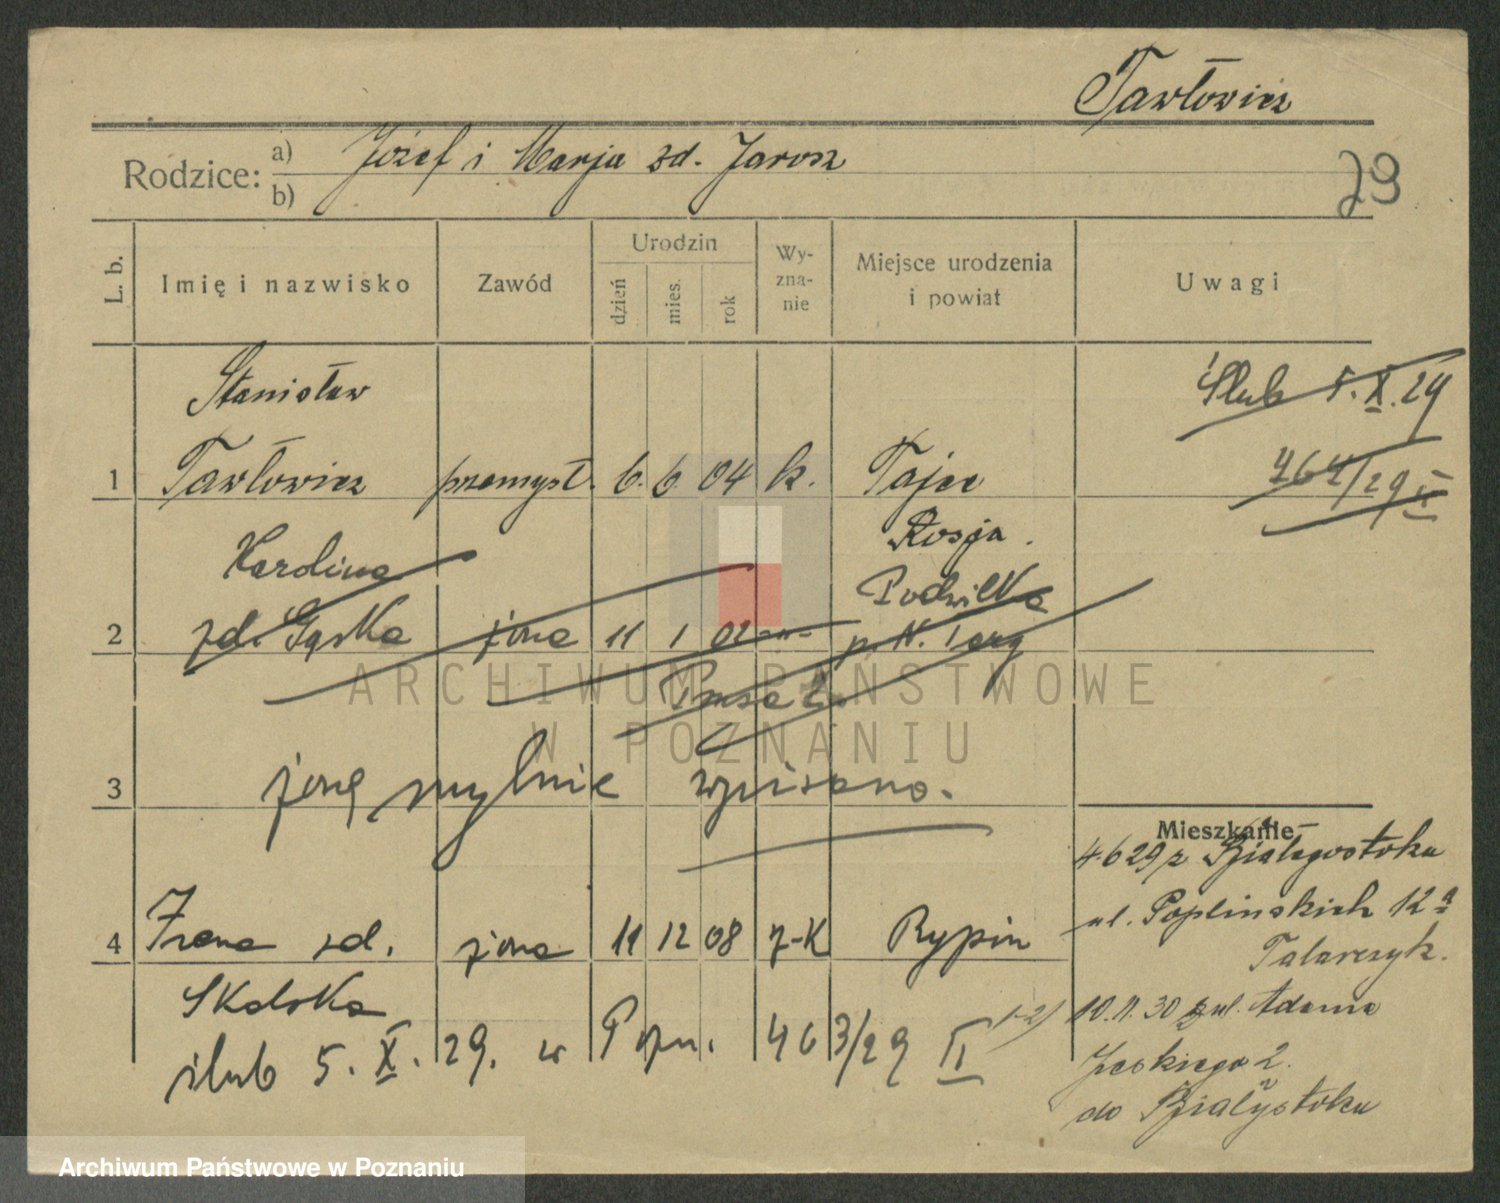 Pawłowicz
Rodzice: a) b) Józef i Marja zd. Jarosz
29
L. b.
Imię i nazwisko
Zawód
Urodzin
dzień
mies.
rok
Wy-
zna-
nie
Miejsce urodzenia
i powiat
Uwagi
Stanisław
Ślub 5. X. 29
1 Pawłowicz przemysł. 6. 6. 04 k. Tajce
464/29 II
Rosja.
Karolina
Podwilka
2 zd. Gąska żona 11 1 02 -"- p. N. Targ
3 żonę mylnie wpisano.
Mieszkanie
4 6 29 z Białegostoku
ul. Poplińskich 12a
4 Irena zd. żona 11 12 08 r-K Rypin
Talarczyk.
Skalska
10. 11. 30 ul. Adama
ślub 5. X. 29. w Pozn. 463/29 II
Jeskiego 2.
do Białystoku
ARCHIWUM PAŃSTWOWE
W POZNANIU
Archiwum Państwowe w Poznaniu